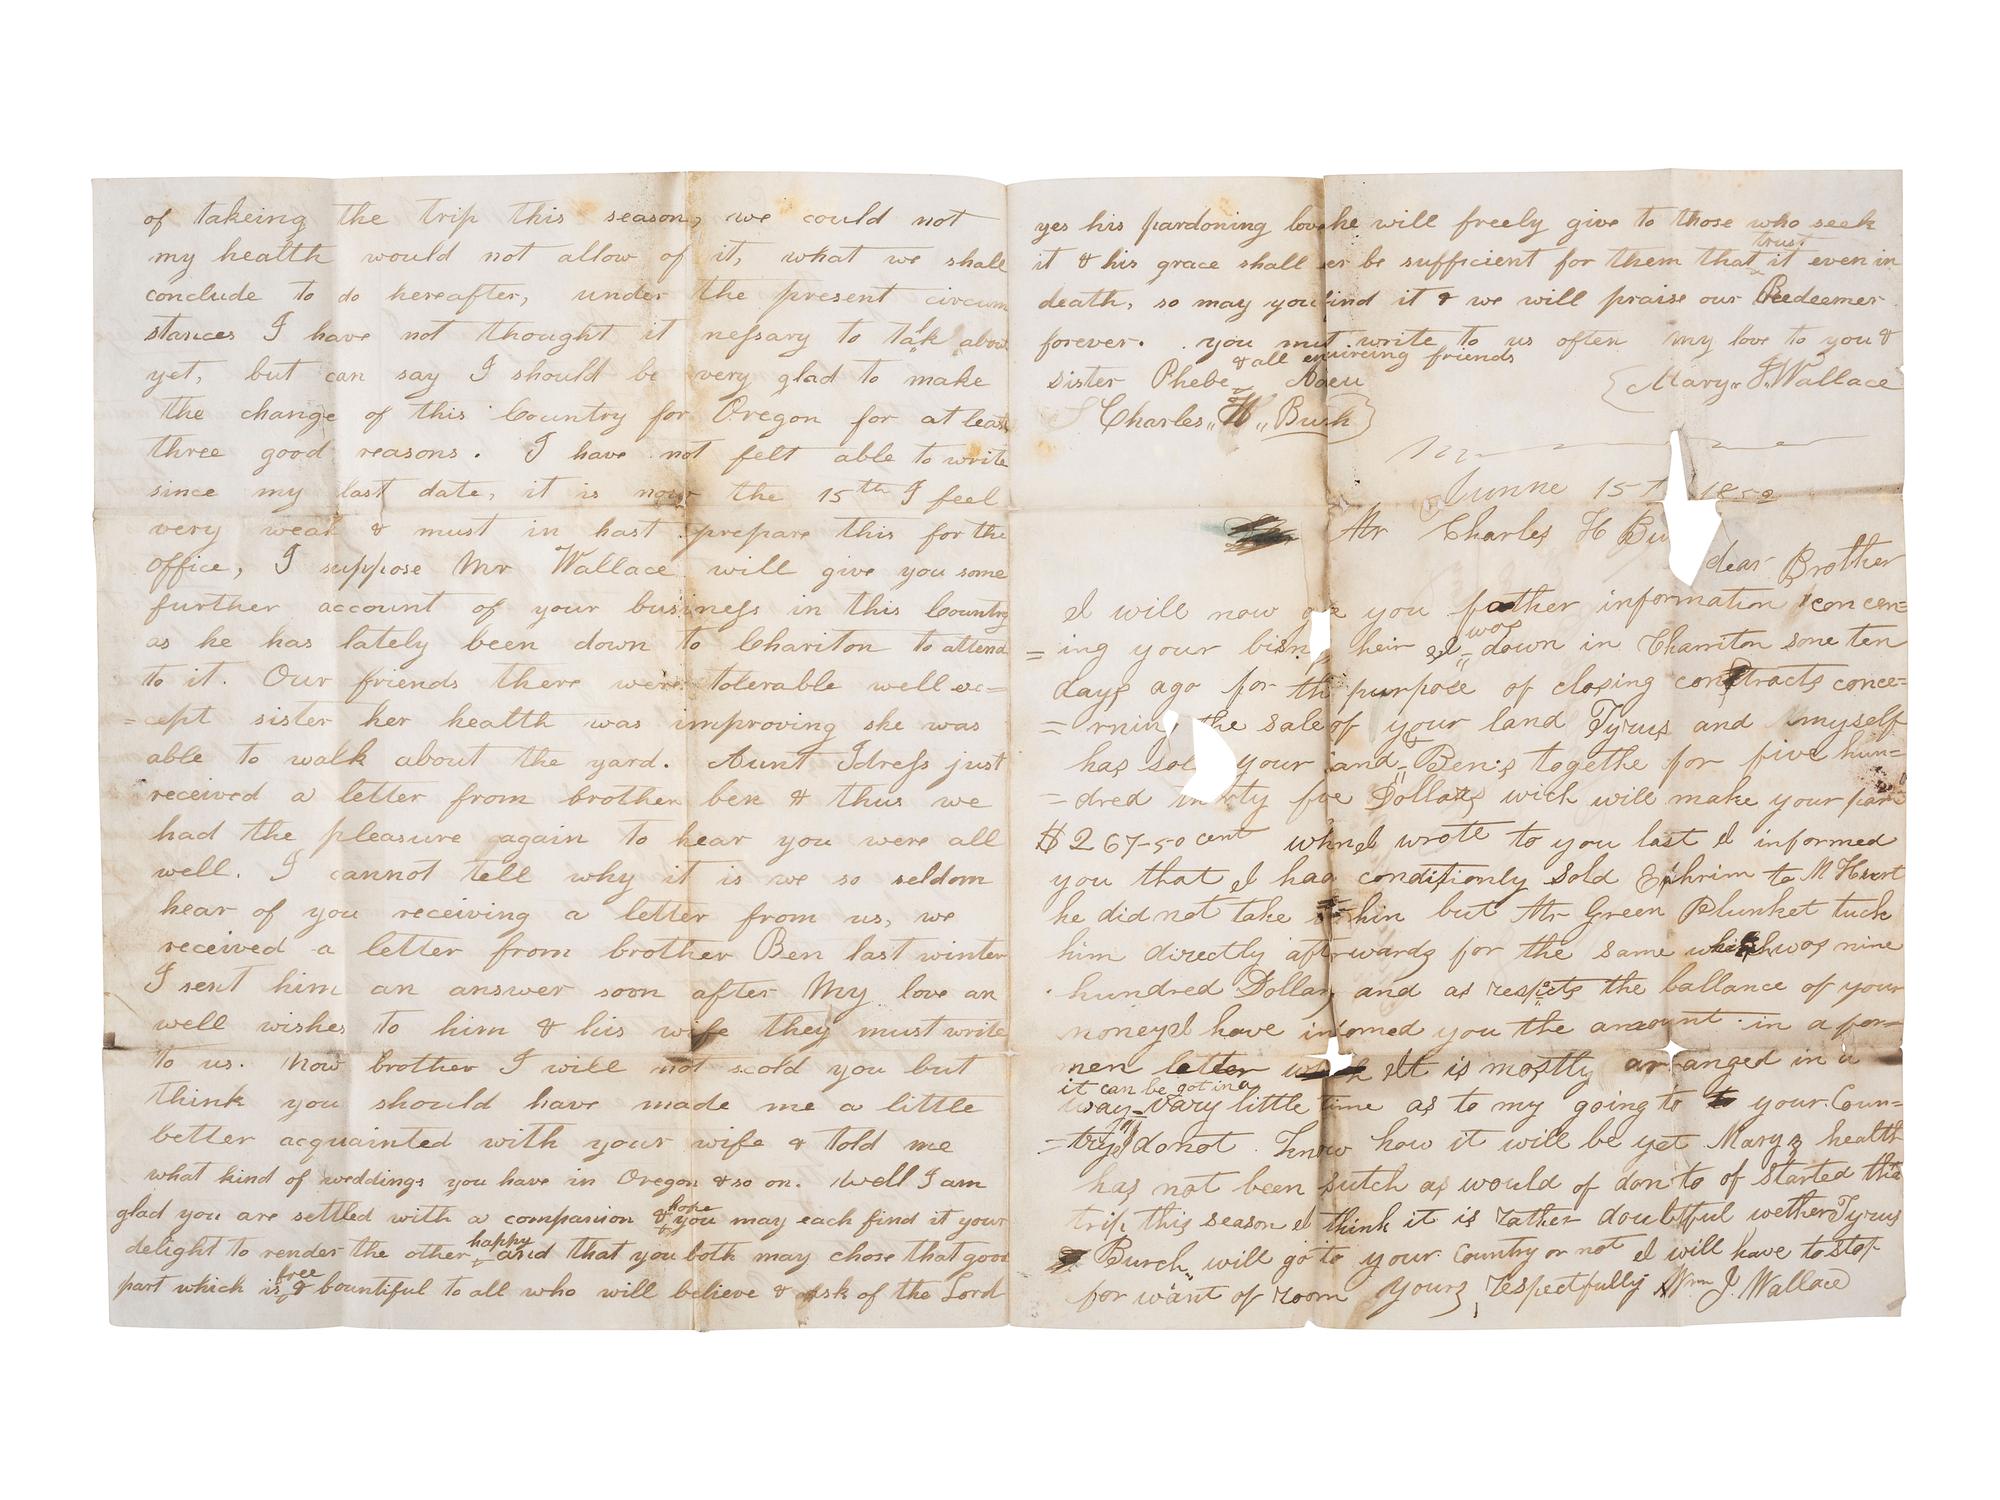 of takeing the trip this season, we could not
my health would not allow of it, what we shall
conclude to do hereafter, under the present circum
stances I have not thought it nessary to talk about
yet, but can say I should be very glad to make
the change of this Country for Oregon for at least
three good reasons. I have not felt able to write
since my last date, it is now the 15th I feel
very weak & must in hast prepare this for the
office, I suppose Mr Wallace will give you some
further account of your business in this Country
as he has lately been down to Chariton to attend
to it. Our friends there were tolerable well ex=
=cept sister her health was improving she was
able to walk about the yard. Aunt Idress just
received a letter from brother ben & thus we
had the pleasure again to hear you were all
well. I cannot tell why it is we so seldom
hear of you receiving a letter from us, we
received a letter from brother Ben last winter
I sent him an answer soon after My love an
well wishes to him & his wife they must write
to us. Now brother I will not scold you but
think you should have made me a little
better acquainted with your wife & told me
what kind of weddings you have in Oregon & so on. Well I am
glad you are settled with a compasion & hope you may each find it your
delight to render the other happy and that you both may chose that good
part which is free & bountiful to all who will believe & ask of the Lord
yes his pardoning love he will freely give to those who seek
it & his grace shall er be sufficient for them that trust it even in
death, so may you find it & we will praise our Redeemer
forever. you mut write to us often My love to you &
sister Phebe & all enquireing friends Adieu
Mary J. Wallace
Charles H Burh
Junne 15 185
Mr Charles H Bu
dear Brother
I will now you father information concer=
=ing your bisn heir I was down in Charriton some ten
days ago for th purpose of closing contracts conce=
=rnin the sale of your land Tyrus and myself
has sol your and & Ben's togethe for five hun=
=dred rty five Dollars wich will make your part
$267-50 cent when I wrote to you last I informed
you that I had conditionly Sold Ephrim to M Hurt
he did not take him but Mr Green Plunket tuck
him directly afterwards for the same which was nine
hundred Dollars and as respects the ballance of your
money I have infomed you the amount in a for=
mer letter It is mostly arranged in a
way it can be got in a vary little time as to my going to your Coun=
=try I do not know how it will be yet Marys health
has not been sutch as would of don to of started this
trip this season I think it is rather doubtful wether Tyrus
Burch will go to your Country or not I will have to stop
for want of room yours respectfully Wm J. Wallace